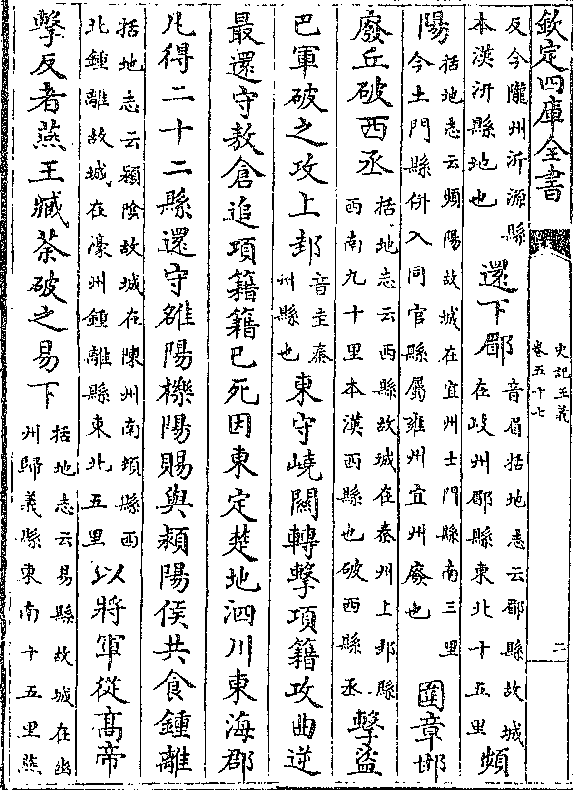 欽定四庫全書
史記正義
卷五十七
二
反今隴州汧源縣本漢汧縣地也還下郿音眉括地志云郿縣故城在岐州郿縣東北十五里頻
陽括地志云頻陽故城在宜州土門縣南三里今土門縣併入同官縣屬雍州宜州廢也圍章邯
廢丘破西丞括地志云西縣故城在秦州上邽縣西南九十里本漢西縣也破西縣丞擊盜
巴軍破之攻上邽音圭秦州縣也東守嶢關轉擊項籍攻曲逆
最還守敖倉追項籍籍已死因東定楚地泗川東海郡
凡得二十二縣還守雒陽櫟陽賜與潁陽侯共食鍾離
括地志云潁陰故城在陳州南頓縣西北鍾離故城在濠州鍾離縣東北五里以將軍從高帝
擊反者燕王臧荼破之易下括地志云易縣故城在幽州歸義縣東南十五里燕